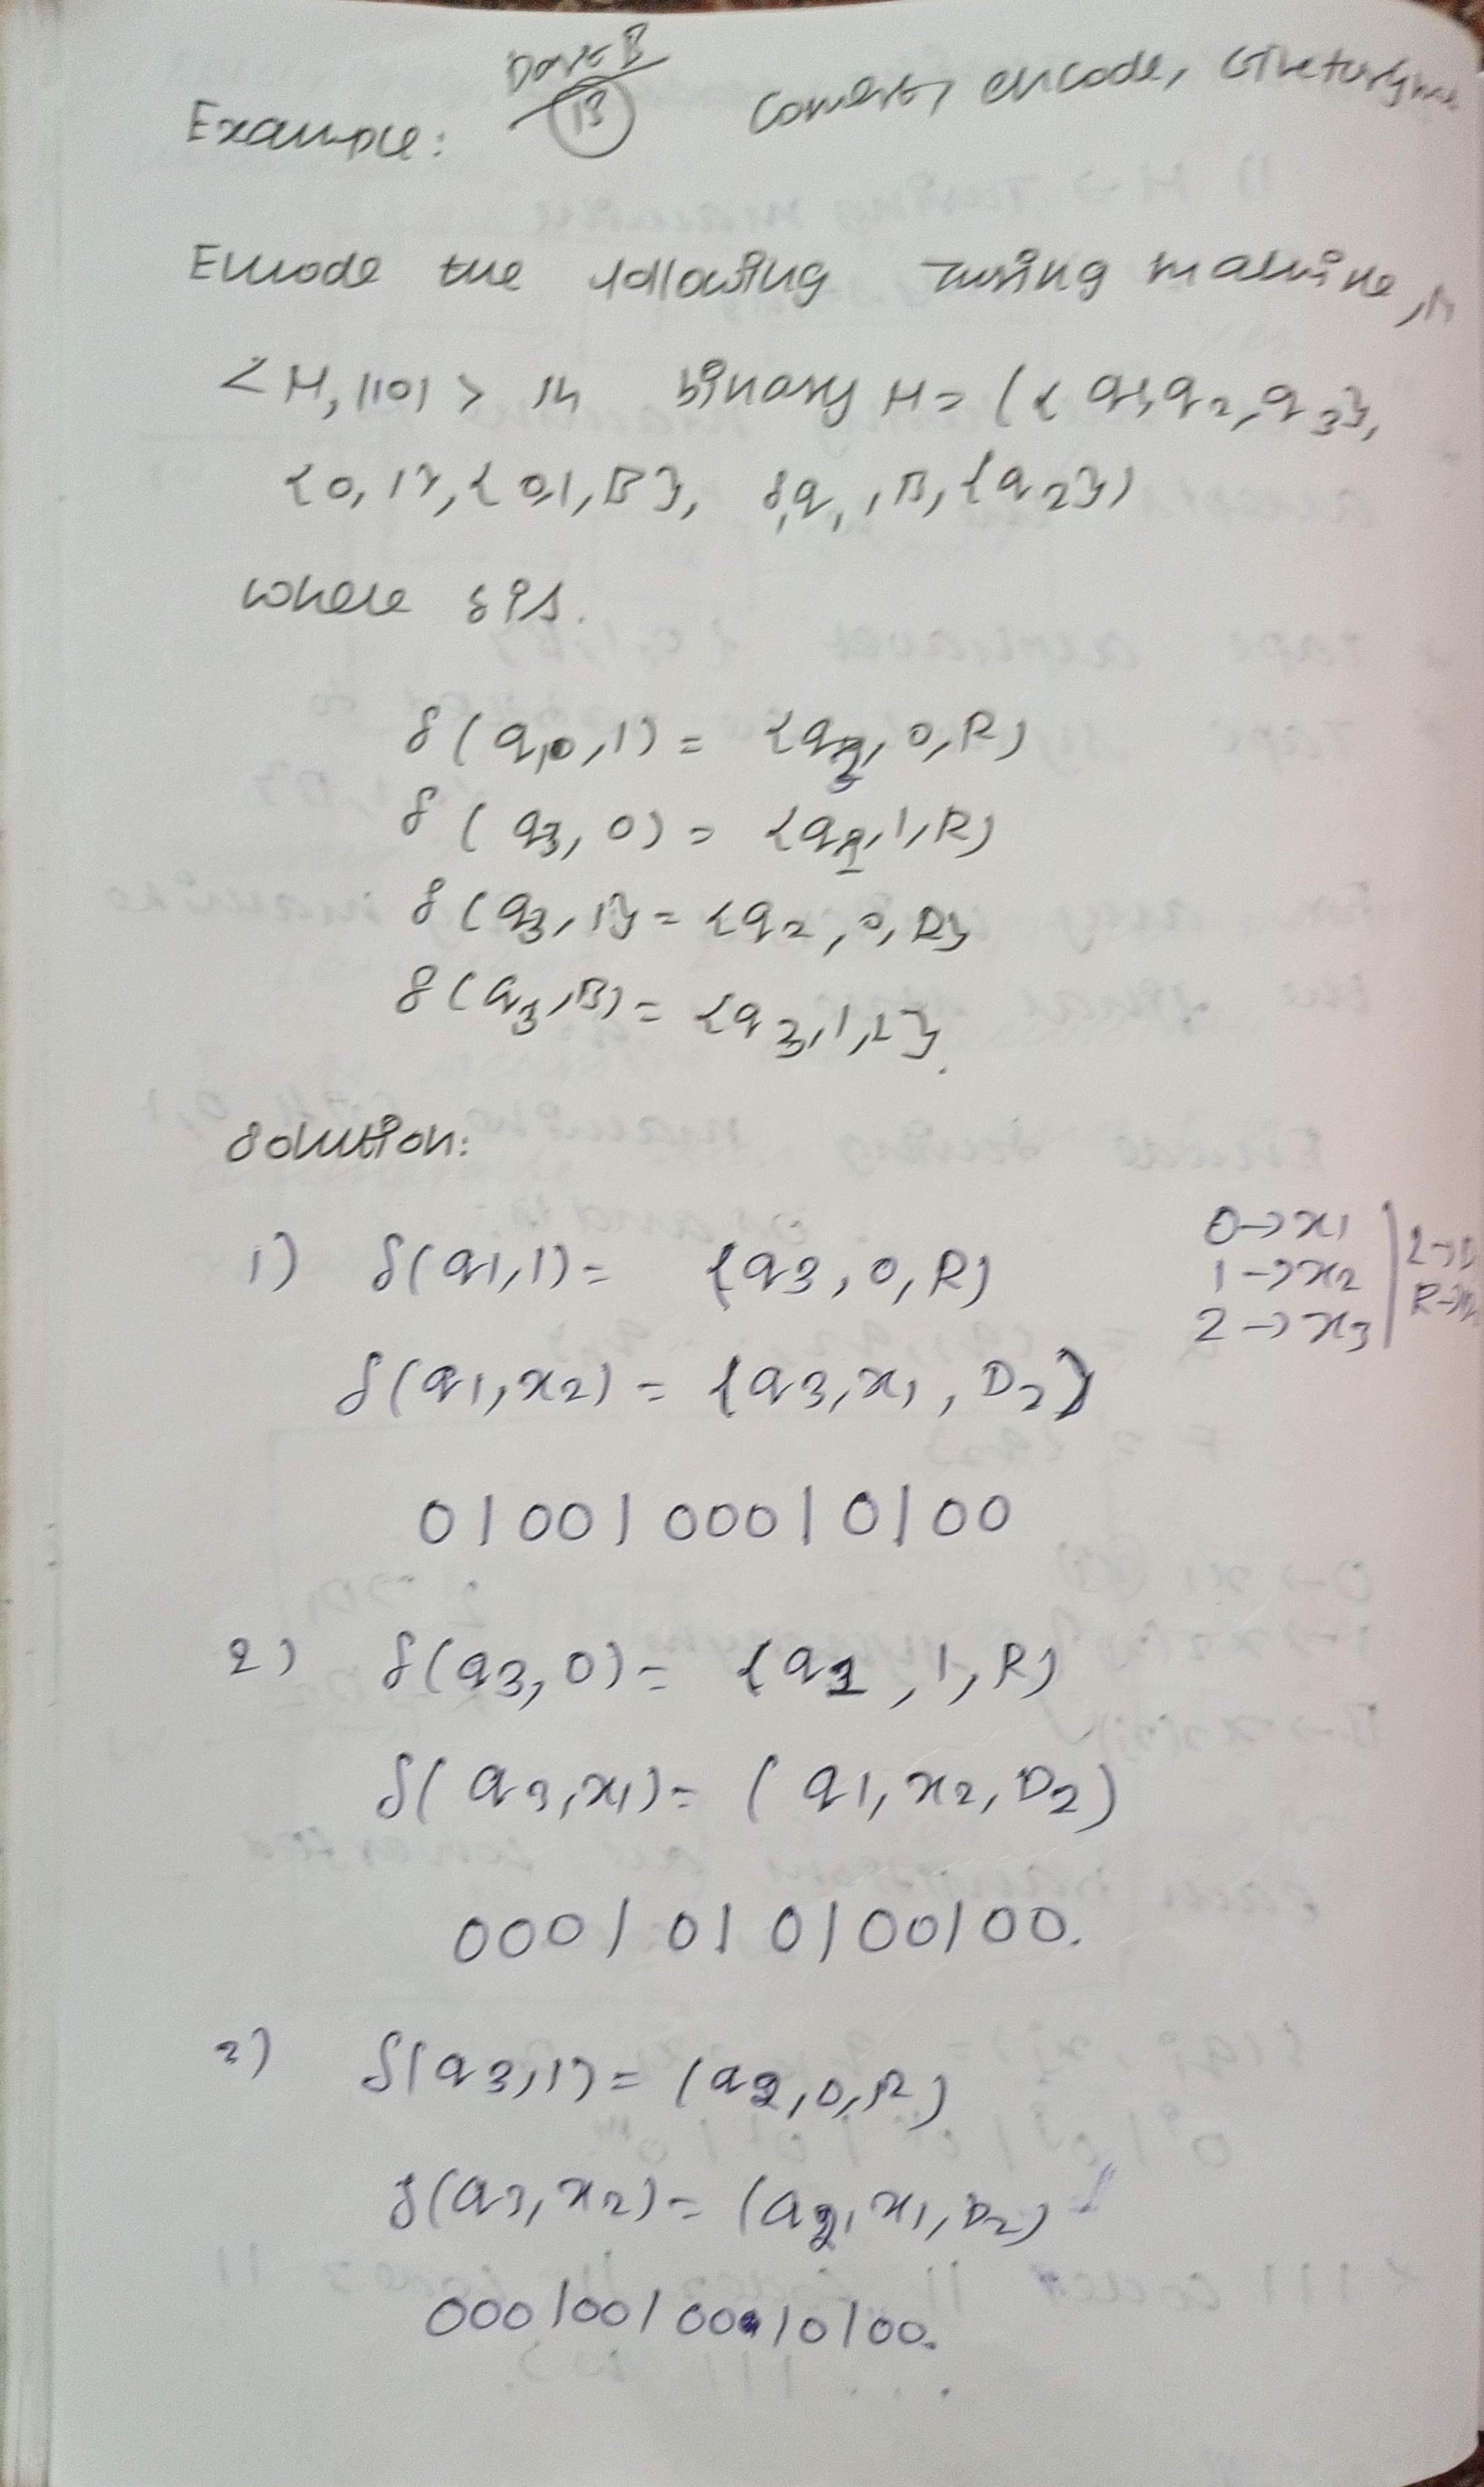 Part B
13
Example:
Convert, encode,
Encode the following Turing machine,
<M, 1101> in binary M = ({q1,q2,q3},
{0,1},{0,1,B}, δ,q1,B,{q2})
where δ is.
δ(q1,1) = {q3,0,R)
δ(q3,0) = {q1,1,R)
δ(q3,1} = {q2,0,R}
δ(q3,B) = {q3,1,L}.
Solution:
0→x1
1→x2
2→x3
L→D
R→D
1) δ(q1,1) = {q3,0,R)
δ(q1,x2) = {q3,x1,D2)
0100100010100
2) δ(q3,0) = {q1,1,R)
δ(q3,x1) = (q1,x2,D2)
0001010100100.
3) δ(q3,1) = (q2,0,R)
δ(q3,x2) = (q2,x1,D2)
00010010010100.